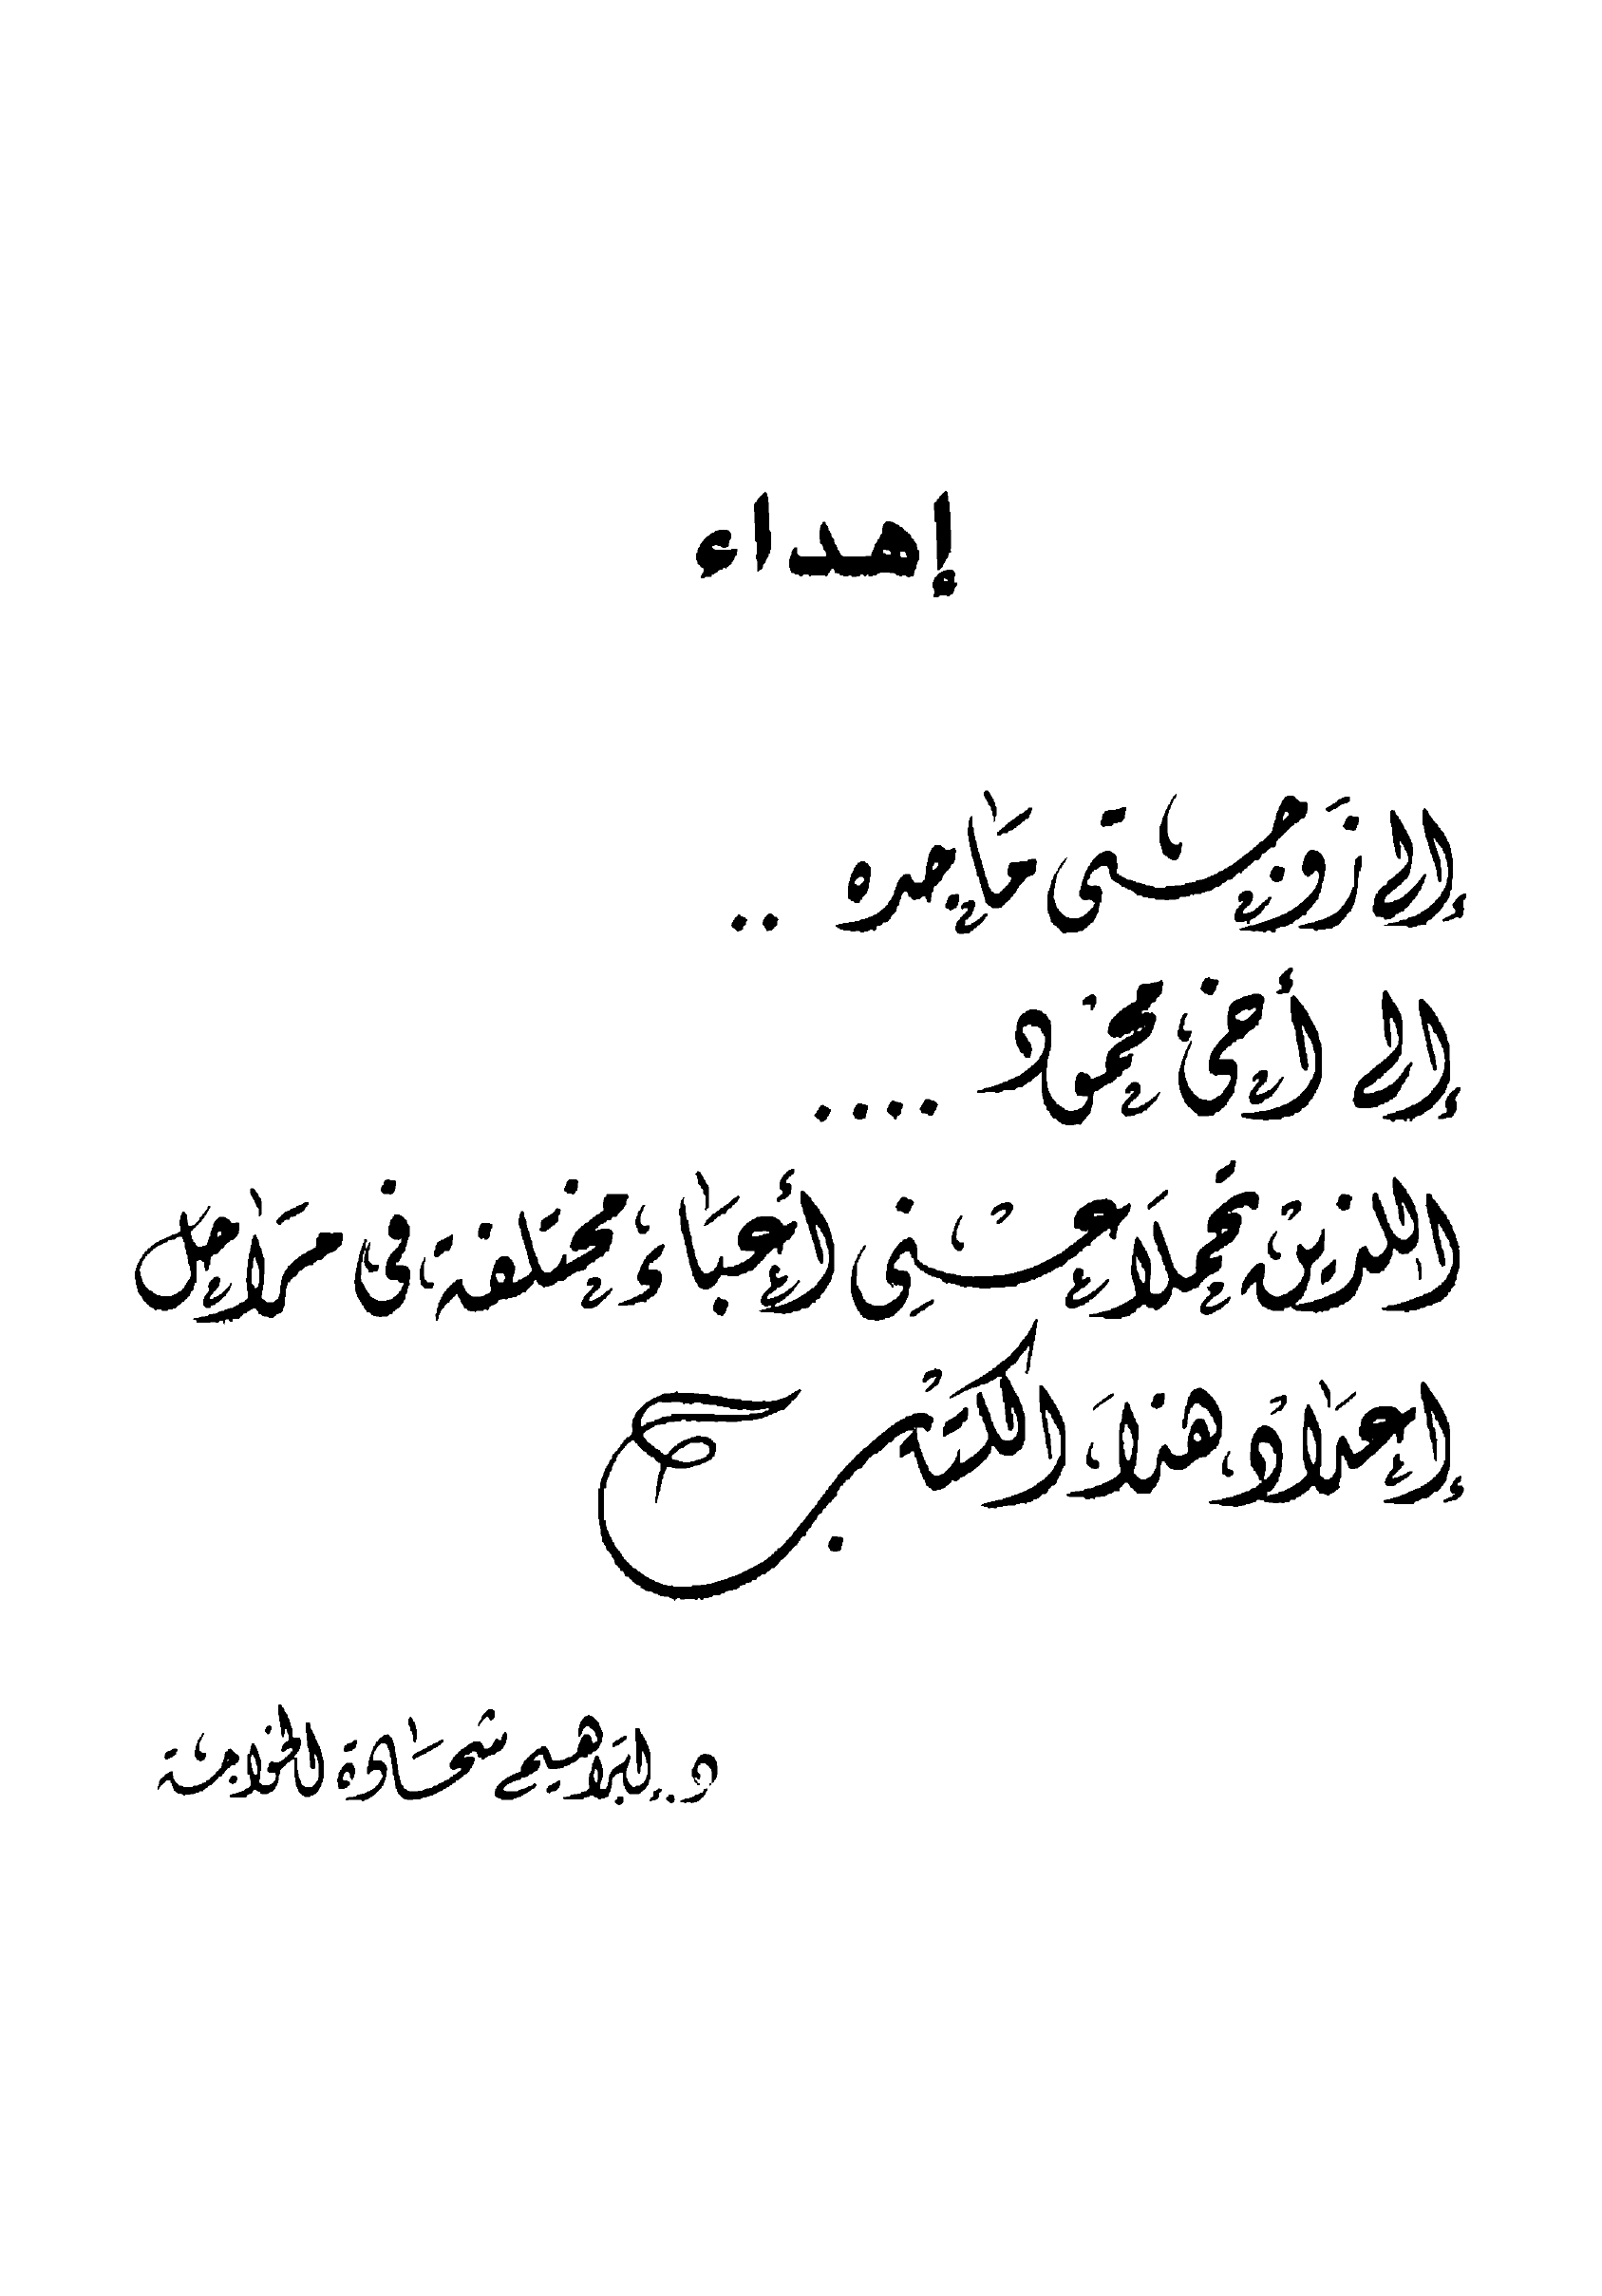 إهداء
إلى زوجتى ماجده ..
إلى أخى محمود ....
اللذين تحملا عنى أعباء مختلفة فى مراحل
إعداد هذا الكتاب
د. إبراهيم شحادة الخواجة